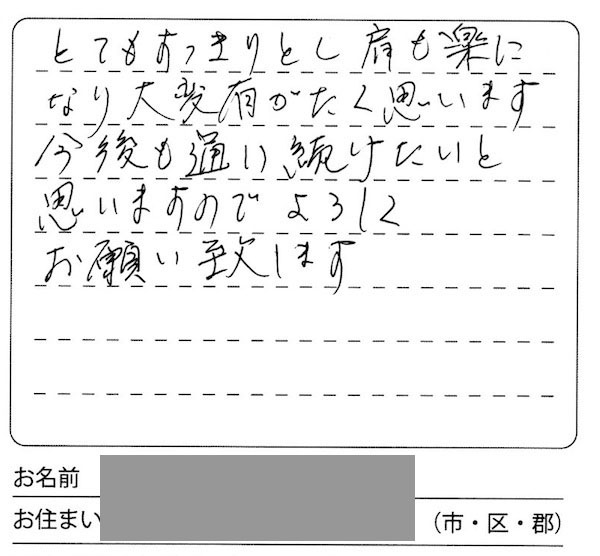 とてもすっきりとし肩も楽に
なり大変有がたく思います
今後も通い続けたいと
思いますのでよろしく
お願い致します
お名前
お住まい
（市・区・郡）